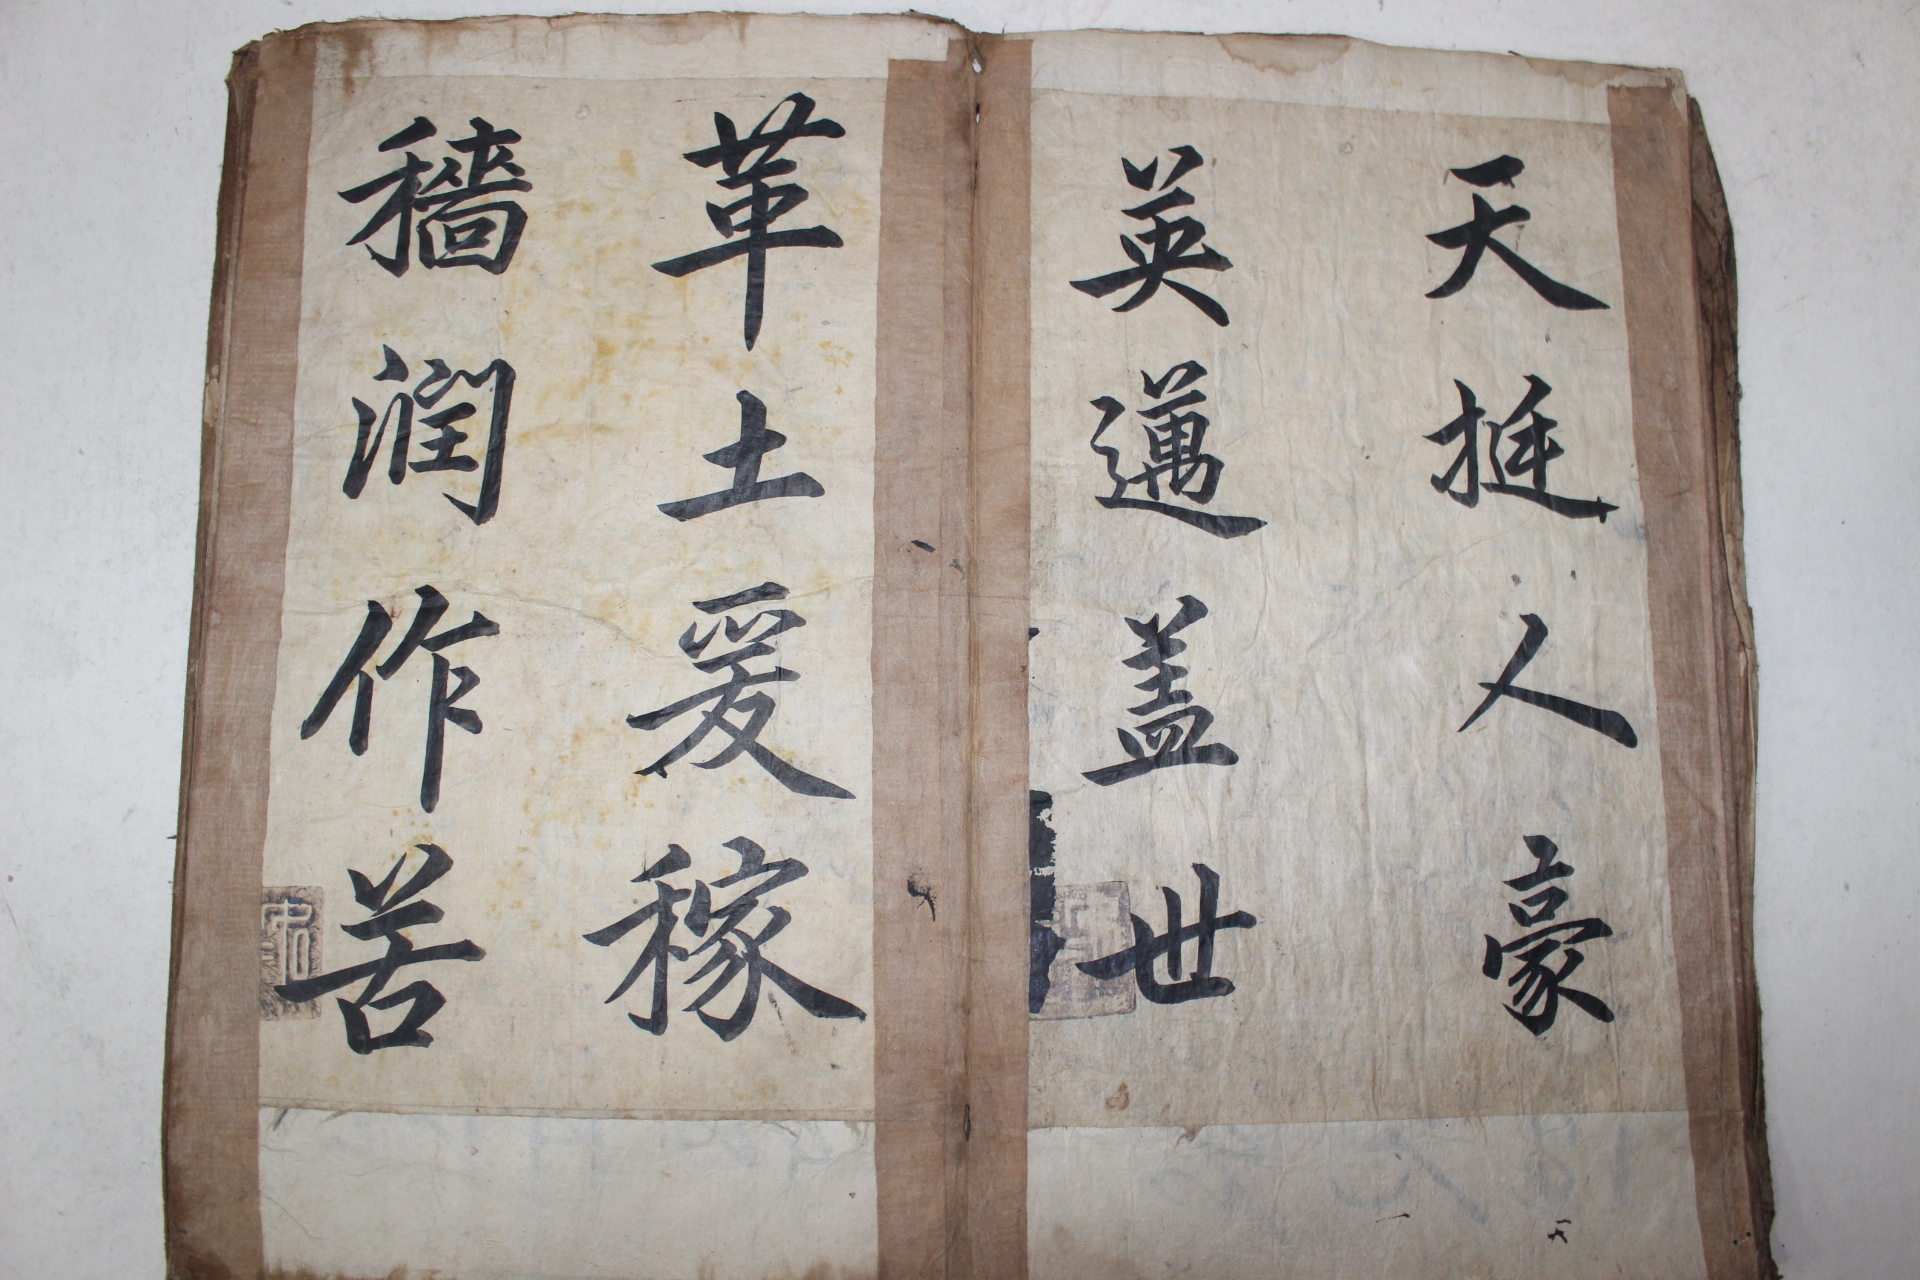 天挺人豪
英邁盖世
革土爰稼
穡潤作苦